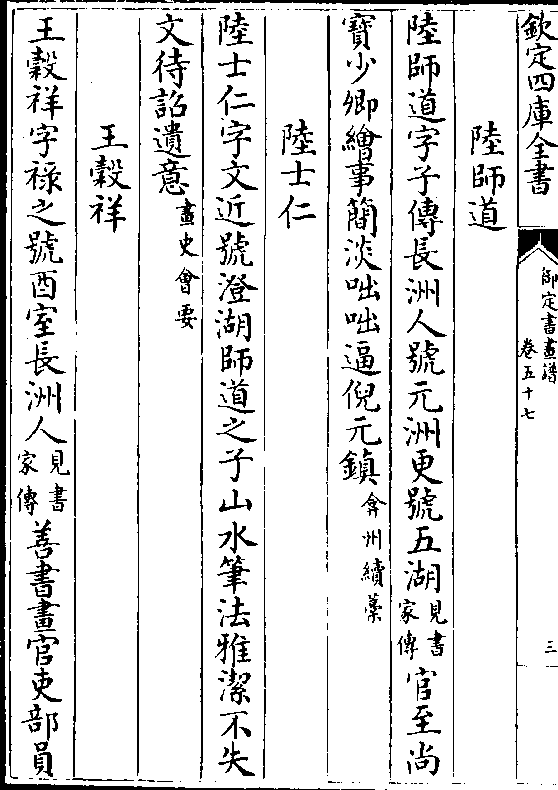 欽定四庫全書
御定書畫譜
卷五十七
三
陸師道
陸師道字子傳長洲人號元洲更號五湖見書家傳官至尚
寶少卿繪事簡淡咄咄逼倪元鎮弇州續藁
陸士仁
陸士仁字文近號澄湖師道之子山水筆法雅潔不失
文待詔遺意畫史會要
王穀祥
王穀祥字祿之號酉室長洲人見書家傳善書畫官吏部員